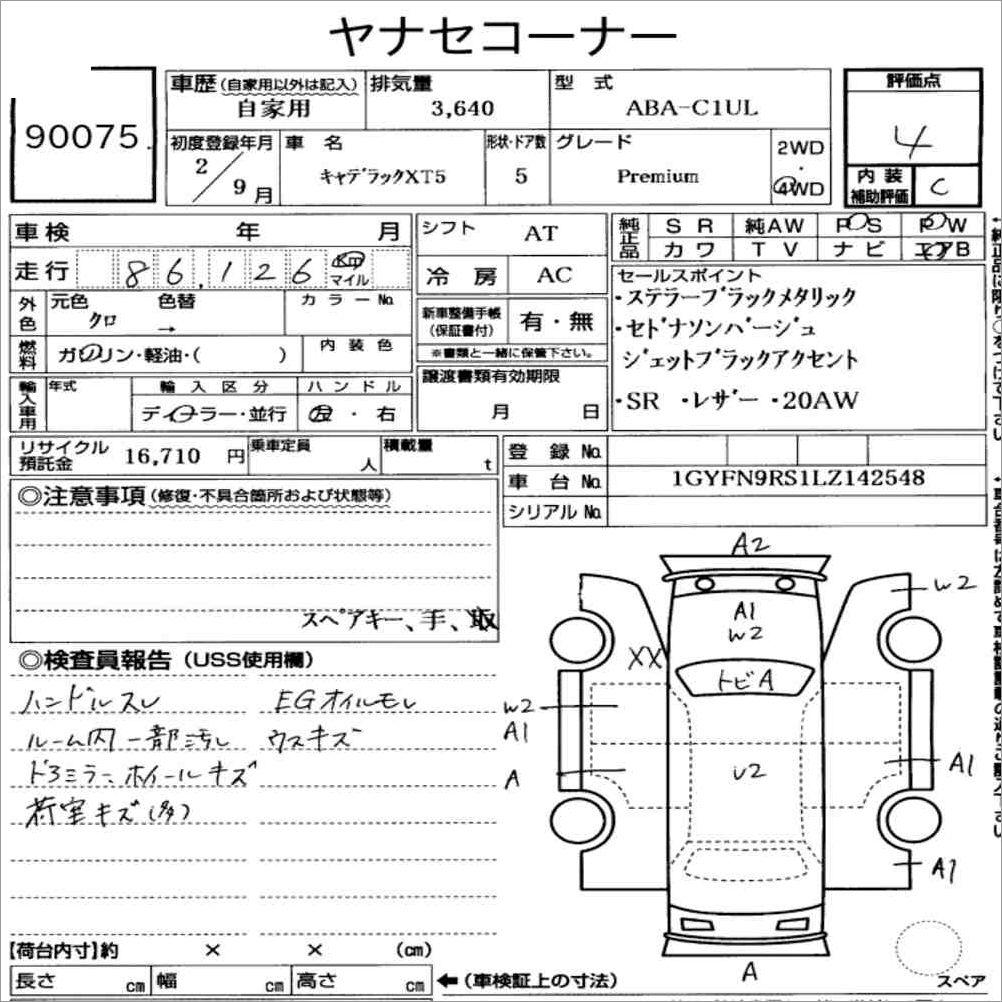 ヤナセコーナー
90075
車歴 (自家用以外は記入)
自家用
排気量
3,640
型 式
ABA-C1UL
評価点
4
初度登録年月
2/9月
車 名
キャデラックXT5
形状・ドア数
5
グレード
Premium
2WD
・
4WD
内 装
補助評価
C
車検 年 月
走行 86,126 km
マイル
シフト AT
冷 房 AC
純正品
S R 純AW P S P W
カ ワ T V ナ ビ エアB
外色
元色 色替 カラーNo.
クロ →
新車整備手帳
(保証書付)
有・無
※書類と一緒に保管下さい。
セールスポイント
・ステラーブラックメタリック
・セドナソンバージュ
ジェットブラックアクセント
・SR ・レザー ・20AW
燃料
ガソリン・軽油・( )
内 装 色
輸入車用
年式
輸 入 区 分
ディーラー・並行
ハ ン ド ル
左 ・ 右
譲渡書類有効期限
月 日
リサイクル
預託金
16,710 円
乗車定員
人
積載量
t
登 録 No.
車 台 No. 1GYFN9RS1LZ142548
シリアル No.
◎注意事項 (修復・不具合箇所および状態等)
スペアキー、手、取
◎検査員報告 (USS使用欄)
ハンドルスレ EGオイルモレ
ルーム内一部汚れ ウスキズ
ドアミラー、ホイールキズ
荷室キズ(多)
A2
W2
A1
W2
XX
トビA
W2
A1
A
U2
A1
A1
A
スペア
【荷台内寸】約 × × (cm)
長さ cm 幅 cm 高さ cm
←(車検証上の寸法)